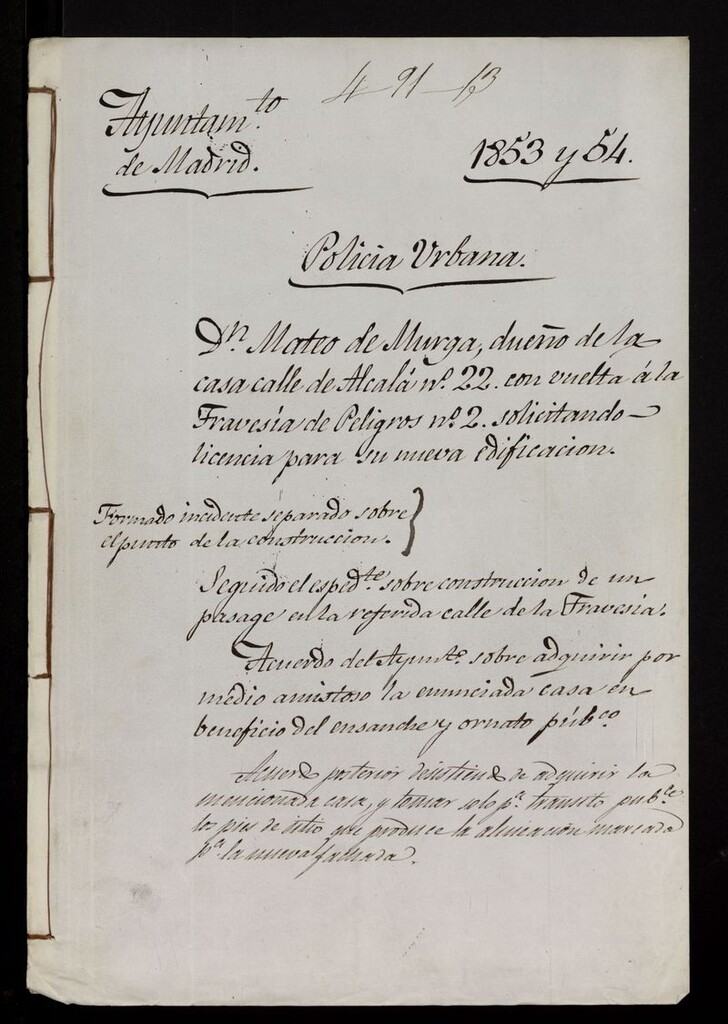 4-91-13
Ayuntam.to
de Madrid.
1853 y 54.
Policia Urbana.
Dn. Mateo de Murga, dueño de la
casa calle de Alcalá nº. 22. con vuelta á la
Travesía de Peligros nº 2. solicitando
licencia para su nueva edificacion.
Formado incidente separado sobre
el punto de la construccion.
Seguido el esped.te sobre construccion de un
pasage en la referida calle de la Travesia.
Acuerdo del Ayunt.o sobre adquirir por
medio amistoso la enunciada casa en
beneficio del ensanche y ornato púb.co
Acuerdo posterior desistiendo de adquirir la
mencionada casa, y tomar solo p.a transito pub.co
los pies de sitio que produce la alineación marcada
p.a la nueva fachada.